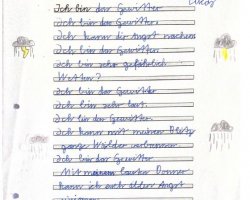 Lucas
Ich bin das Gewitter
Ich bin das Gewitter.
Ich kann dir Angst machen
Ich bin das Gewitter.
Ich bin sehr gefährlich.
Wetten?
Ich bin das Gewitter.
Ich bin sehr laut.
Ich bin das Gewitter.
Ich kann mit meinen Blitz
ganze Wälder verbrennen.
Ich bin das Gewitter
Mit meinem lauten Donner
kann ich euch allen Angst